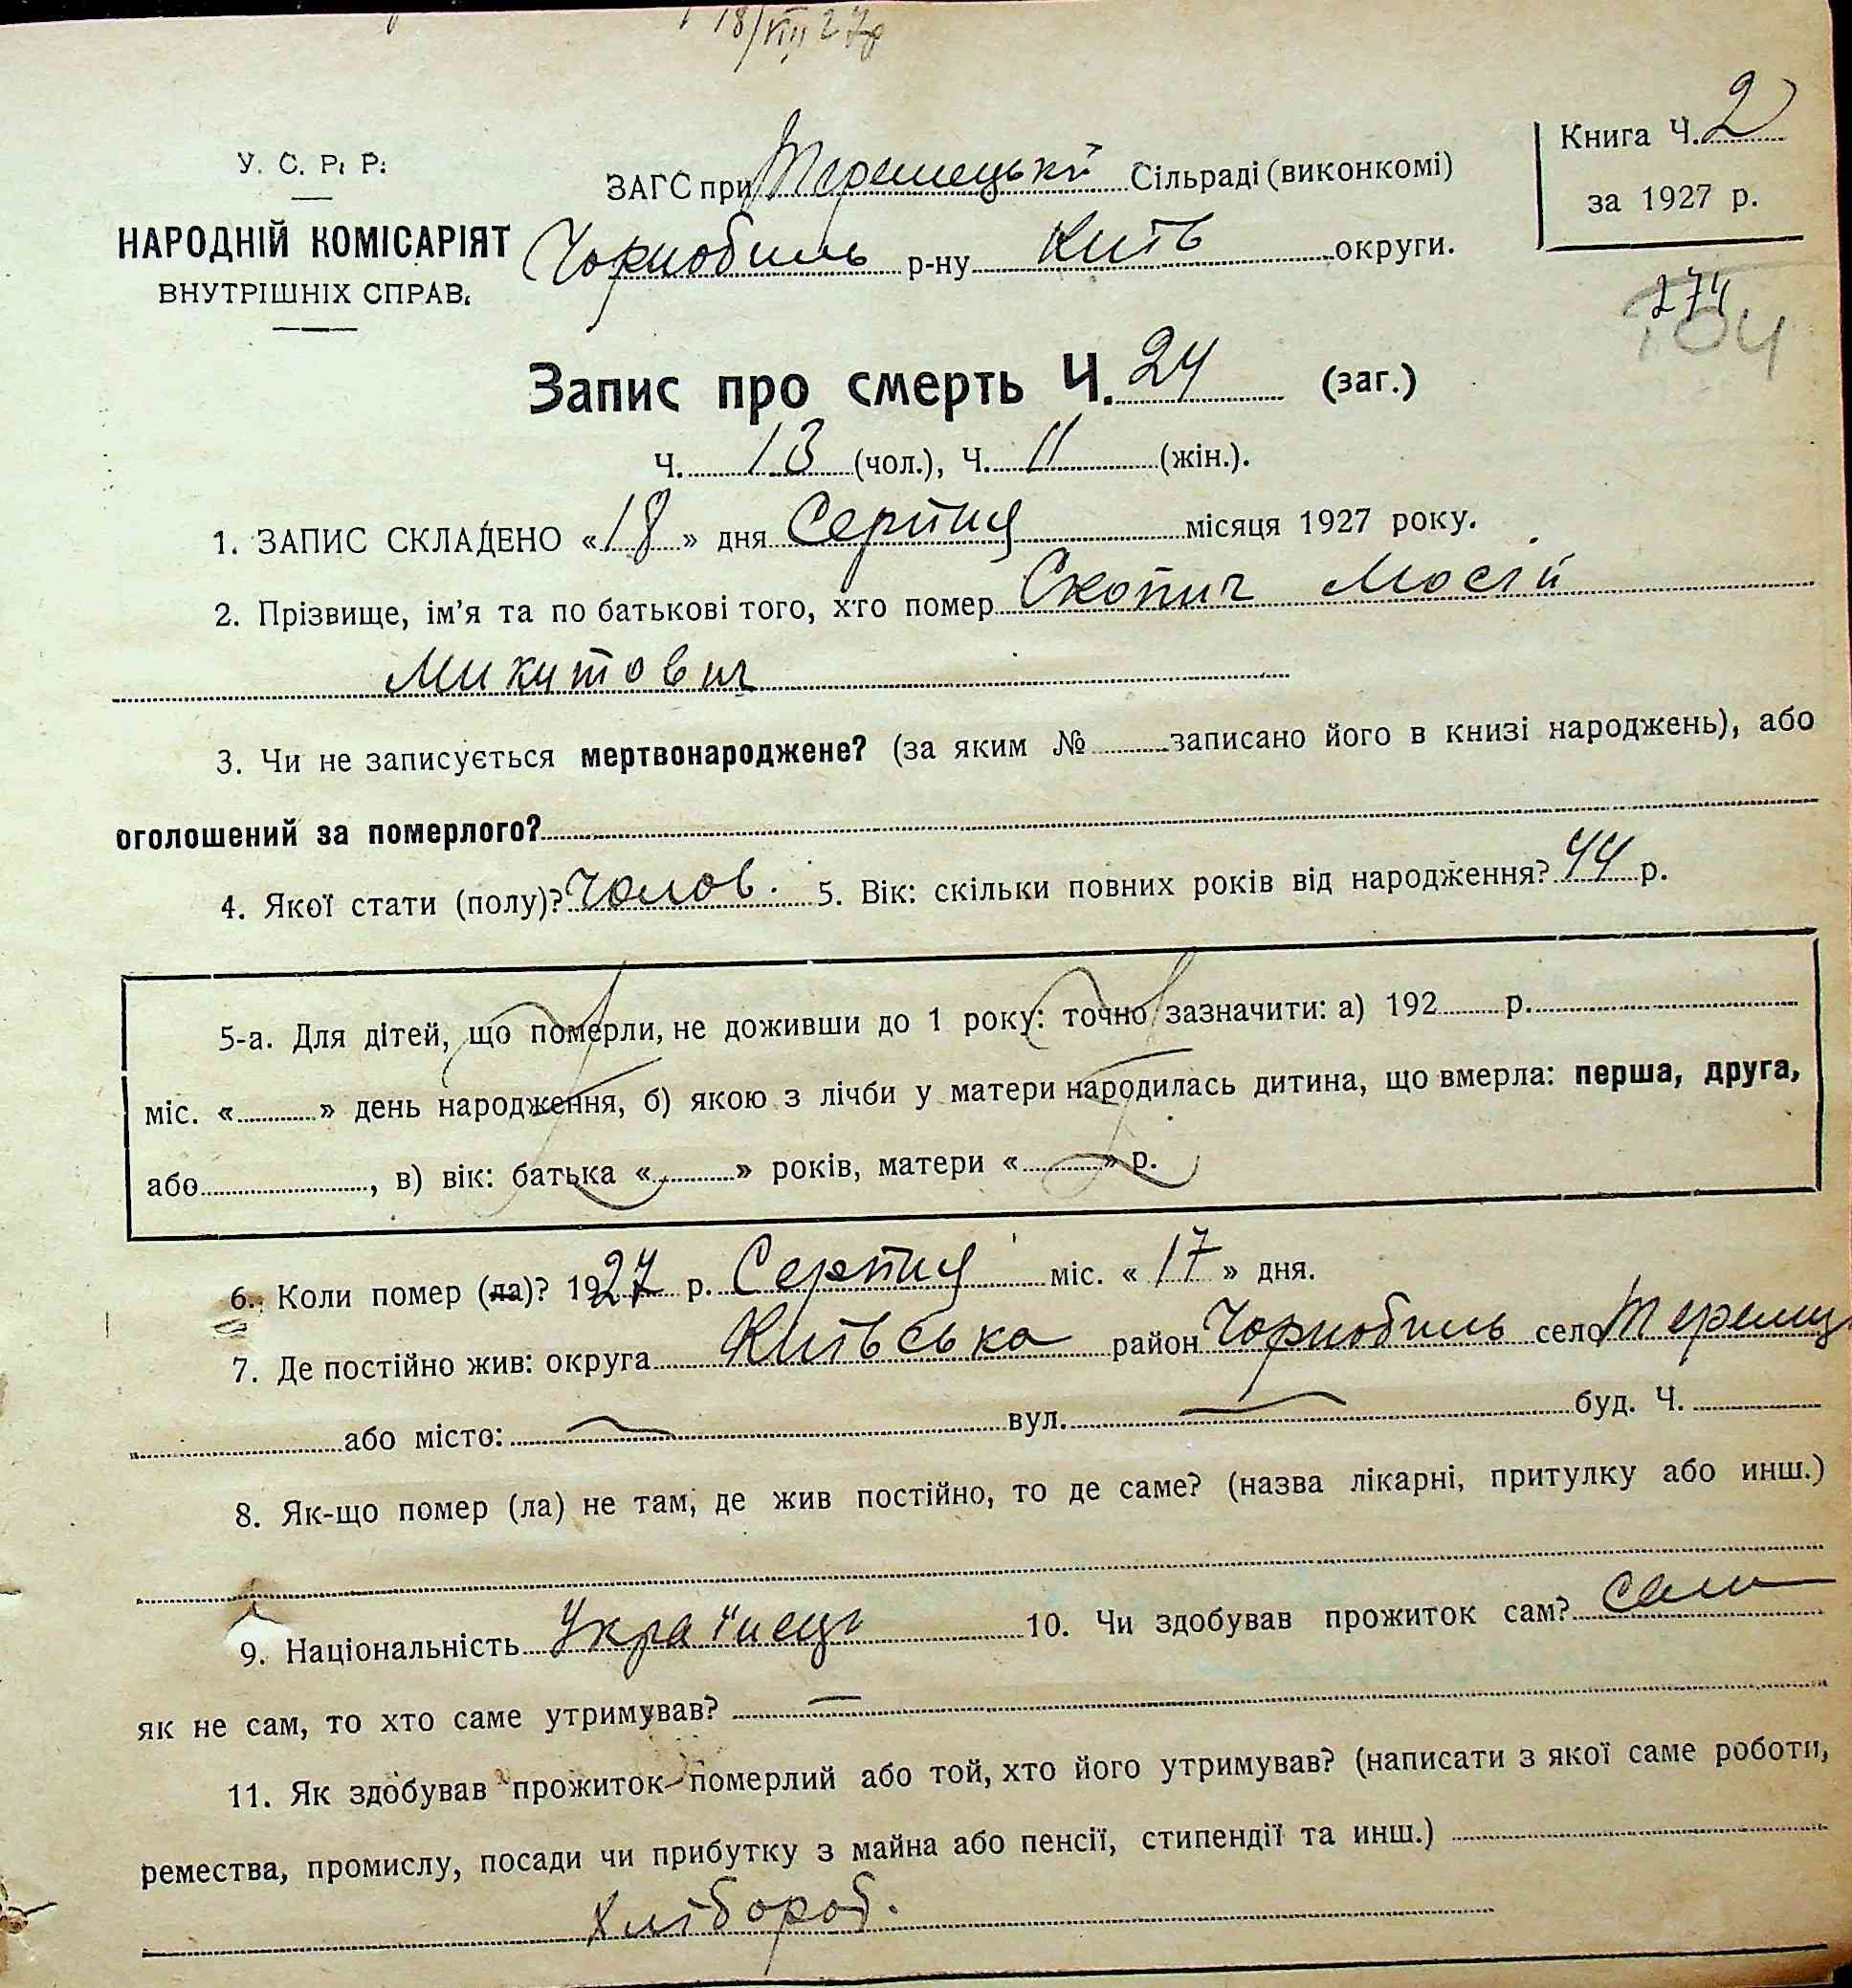 18/VIII 27р
У. С. Р. Р.
НАРОДНІЙ КОМІСАРІЯТ
ВНУТРІШНІХ СПРАВ.
ЗАГС при Теремецькій Сільраді (виконкомі)
Чорнобиль р-ну Київ округи.
Книга Ч. 2
за 1927 р.
274
104
Запис про смерть Ч. 24 (заг.)
Ч. 13 (чол.), Ч. 11 (жін.).
1. ЗАПИС СКЛАДЕНО «18» дня Серпня місяця 1927 року.
2. Прізвище, ім'я та по батькові того, хто помер Скопич Мосій
Микитович
3. Чи не записується мертвонароджене? (за яким № записано його в книзі народжень), або
оголошений за померлого?
4. Якої стати (полу)? Чолов. 5. Вік: скільки повних років від народження? 44 р.
5-а. Для дітей, що померли, не доживши до 1 року: точно зазначити: а) 192 р.
міс. « » день народження, б) якою з лічби у матери народилась дитина, що вмерла: перша, друга,
або , в) вік: батька « » років, матери « » р.
6. Коли помер (ла)? 1927 р. Серпня міс. «17» дня.
7. Де постійно жив: округа Київська район Чорнобиль село Теремці
або місто: — вул. — буд. Ч.
8. Як-що помер (ла) не там, де жив постійно, то де саме? (назва лікарні, притулку або инш.)
9. Національність Українець 10. Чи здобував прожиток сам? сам
як не сам, то хто саме утримував? —
11. Як здобував прожиток померлий або той, хто його утримував? (написати з якої саме роботи,
ремества, промислу, посади чи прибутку з майна або пенсії, стипендії та инш.)
Хлібороб.